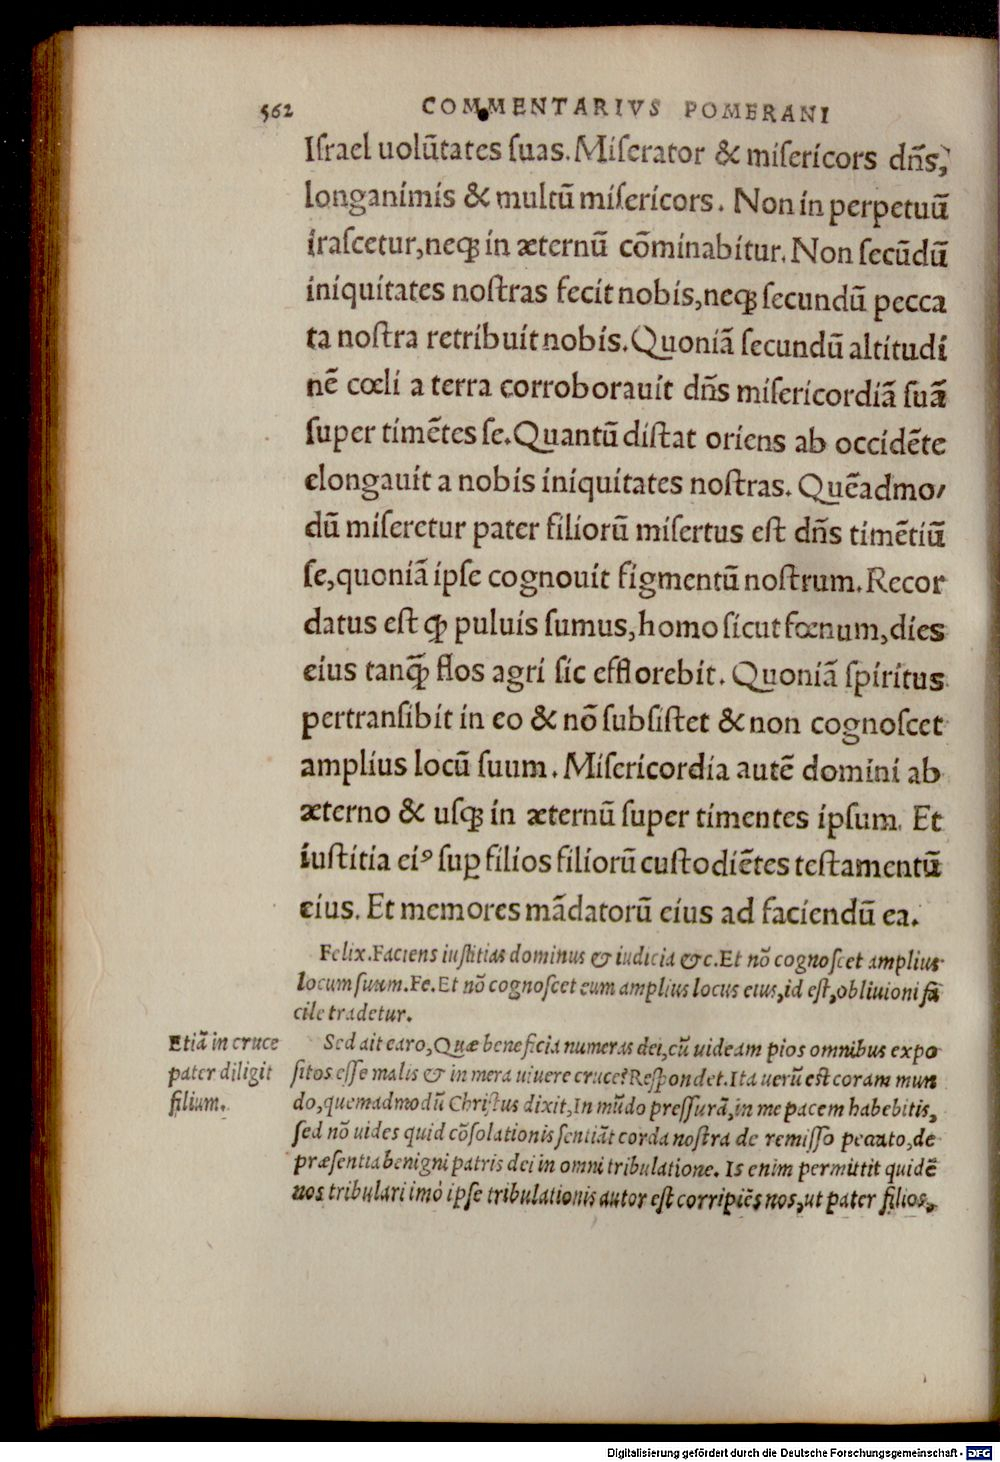 562 COMMENTARIVS POMERANI
Iſrael uolũtates ſuas. Miſerator & miſericors dñs,
longanimis & multũ miſericors. Non in perpetuũ
iraſcetur, neqꝫ in æternũ cõminabitur. Non ſecũdũ
iniquitates noſtras fecit nobis, neqꝫ ſecundũ pecca
ta noſtra retribuit nobis. Quoniã ſecundũ altitudi
nẽ cœli a terra corroborauit dñs miſericordiã ſuã
ſuper timẽtes ſe. Quantũ diſtat oriens ab occidẽte
elongauit a nobis iniquitates noſtras. Quẽadmo/
dũ miſeretur pater filiorũ miſertus eſt dñs timẽtiũ
ſe, quoniã ipſe cognouit figmentũ noſtrum. Recor
datus eſt ꝙ puluis ſumus, homo ſicut fœnum, dies
eius tanꝙ̃ flos agri ſic efflorebit. Quoniã ſpiritus
pertranſibit in eo & nõ ſubſiſtet & non cognoſcet
amplius locũ ſuum. Miſericordia autẽ domini ab
æterno & uſqꝫ in æternũ ſuper timentes ipſum. Et
iuſtitia eiꝰ ſuꝑ filios filiorũ cuſtodiẽtes teſtamentũ
eius. Et memores mãdatorũ eius ad faciendũ ea.
Felix. Faciens iuſtitias dominus & iudicia &c. Et nõ cognoſcet amplius
locum ſuum. Fe. Et nõ cognoſcet eum amplius locus eius, id eſt, obliuioni fa
cile tradetur.
Etiã in cruce
pater diligit
filium.
Sed ait caro, Quæ beneficia numeras dei, cũ uideam pios omnibus expo
ſitos eſſe malis & in mera uiuere cruce? Reſpondet. Ita uerũ eſt coram mun
do, quemadmodũ Chriſtus dixit, In mũdo preſſurã, in me pacem habebitis,
ſed nõ uides quid cõſolationis ſentiãt corda noſtra de remiſſo pecato, de
præſentia benigni patris dei in omni tribulatione. Is enim permittit quidẽ
nos tribulari imò ipſe tribulationis autor eſt corripiẽs nos, ut pater filios,
Digitalisierung gefördert durch die Deutsche Forschungsgemeinschaft - DFG